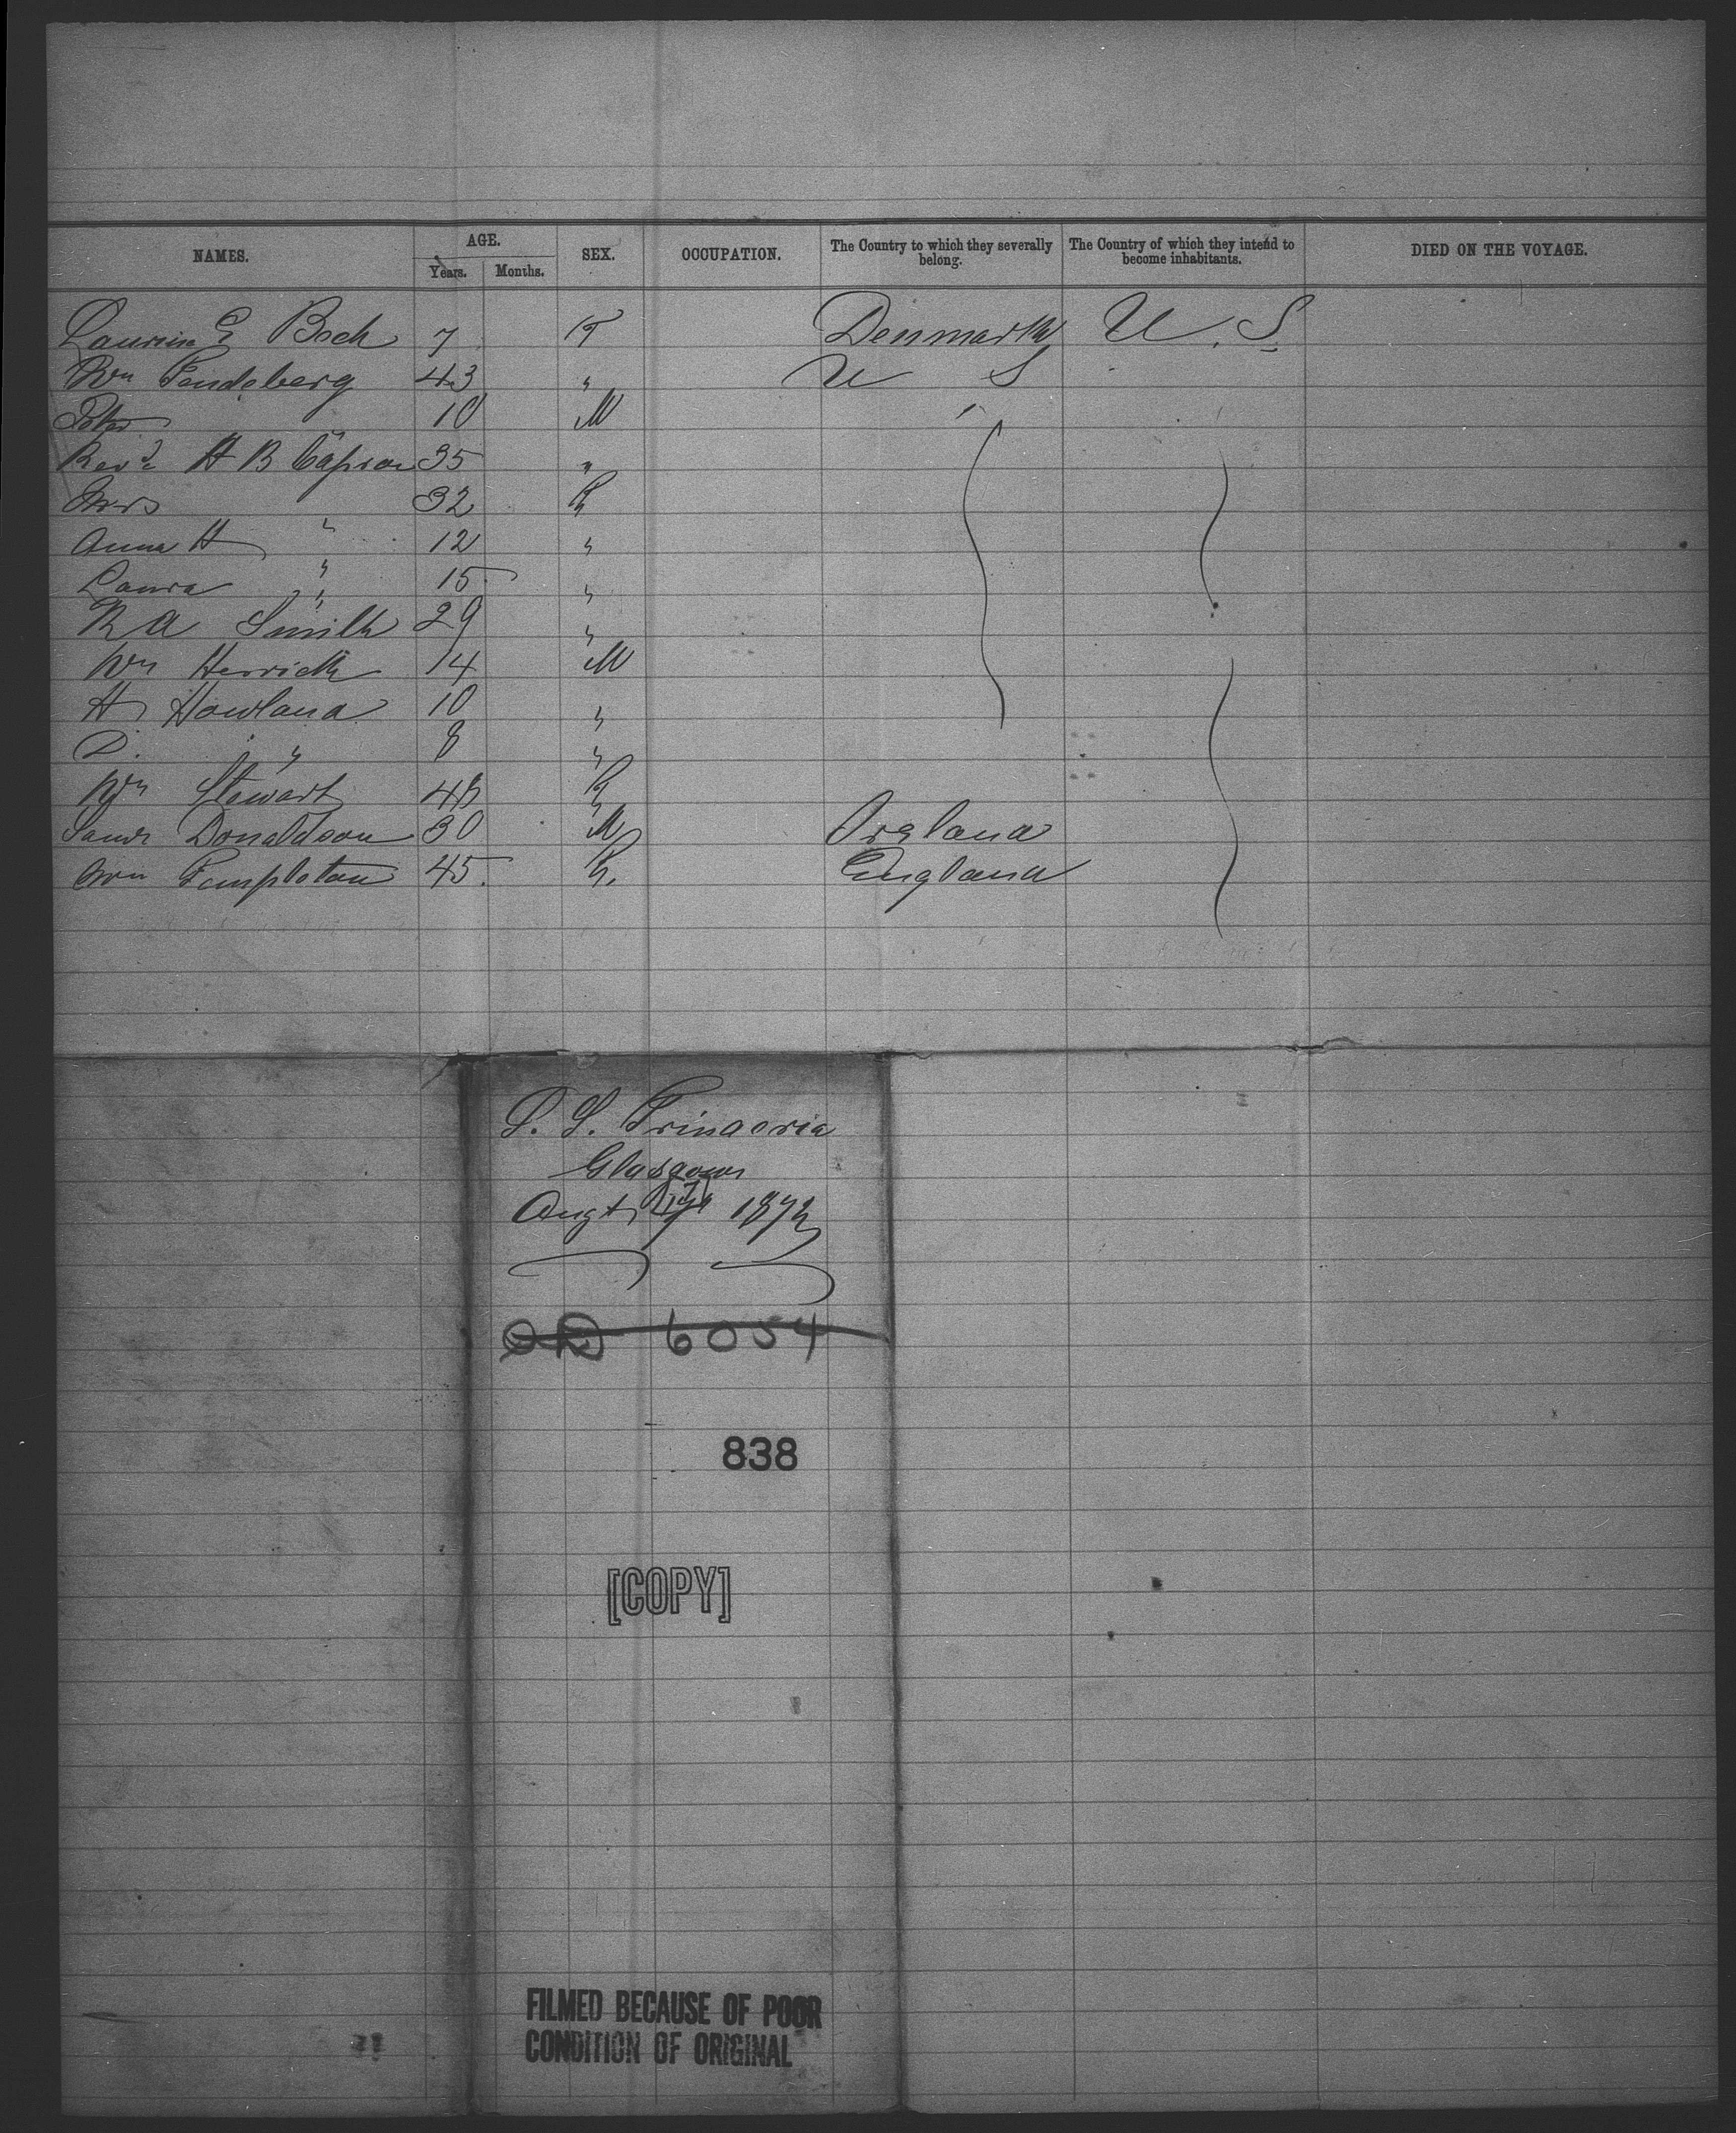 NAMES. AGE. SEX. OCCUPATION. The Country to which they severally belong. The Country of which they intend to become inhabitants. DIED ON THE VOYAGE.
Years. Months.
E Bech 7 F Denmark U. S.
43 " U S
10 " M "
Revd H B Capron 35 "
Mrs " 32 F
Anna H " 12 "
Laura " 15 "
R A Smith 29 "
Wm Herrick 14 M
H Howland 10 "
D. " 8 "
Wm Stewart 48 F
Donaldson 30 M Ireland
Templeton 45. F. England
S. S. Trinacria
Glasgow
Augt 1872
6054
838
[COPY]
FILMED BECAUSE OF POOR
CONDITION OF ORIGINAL